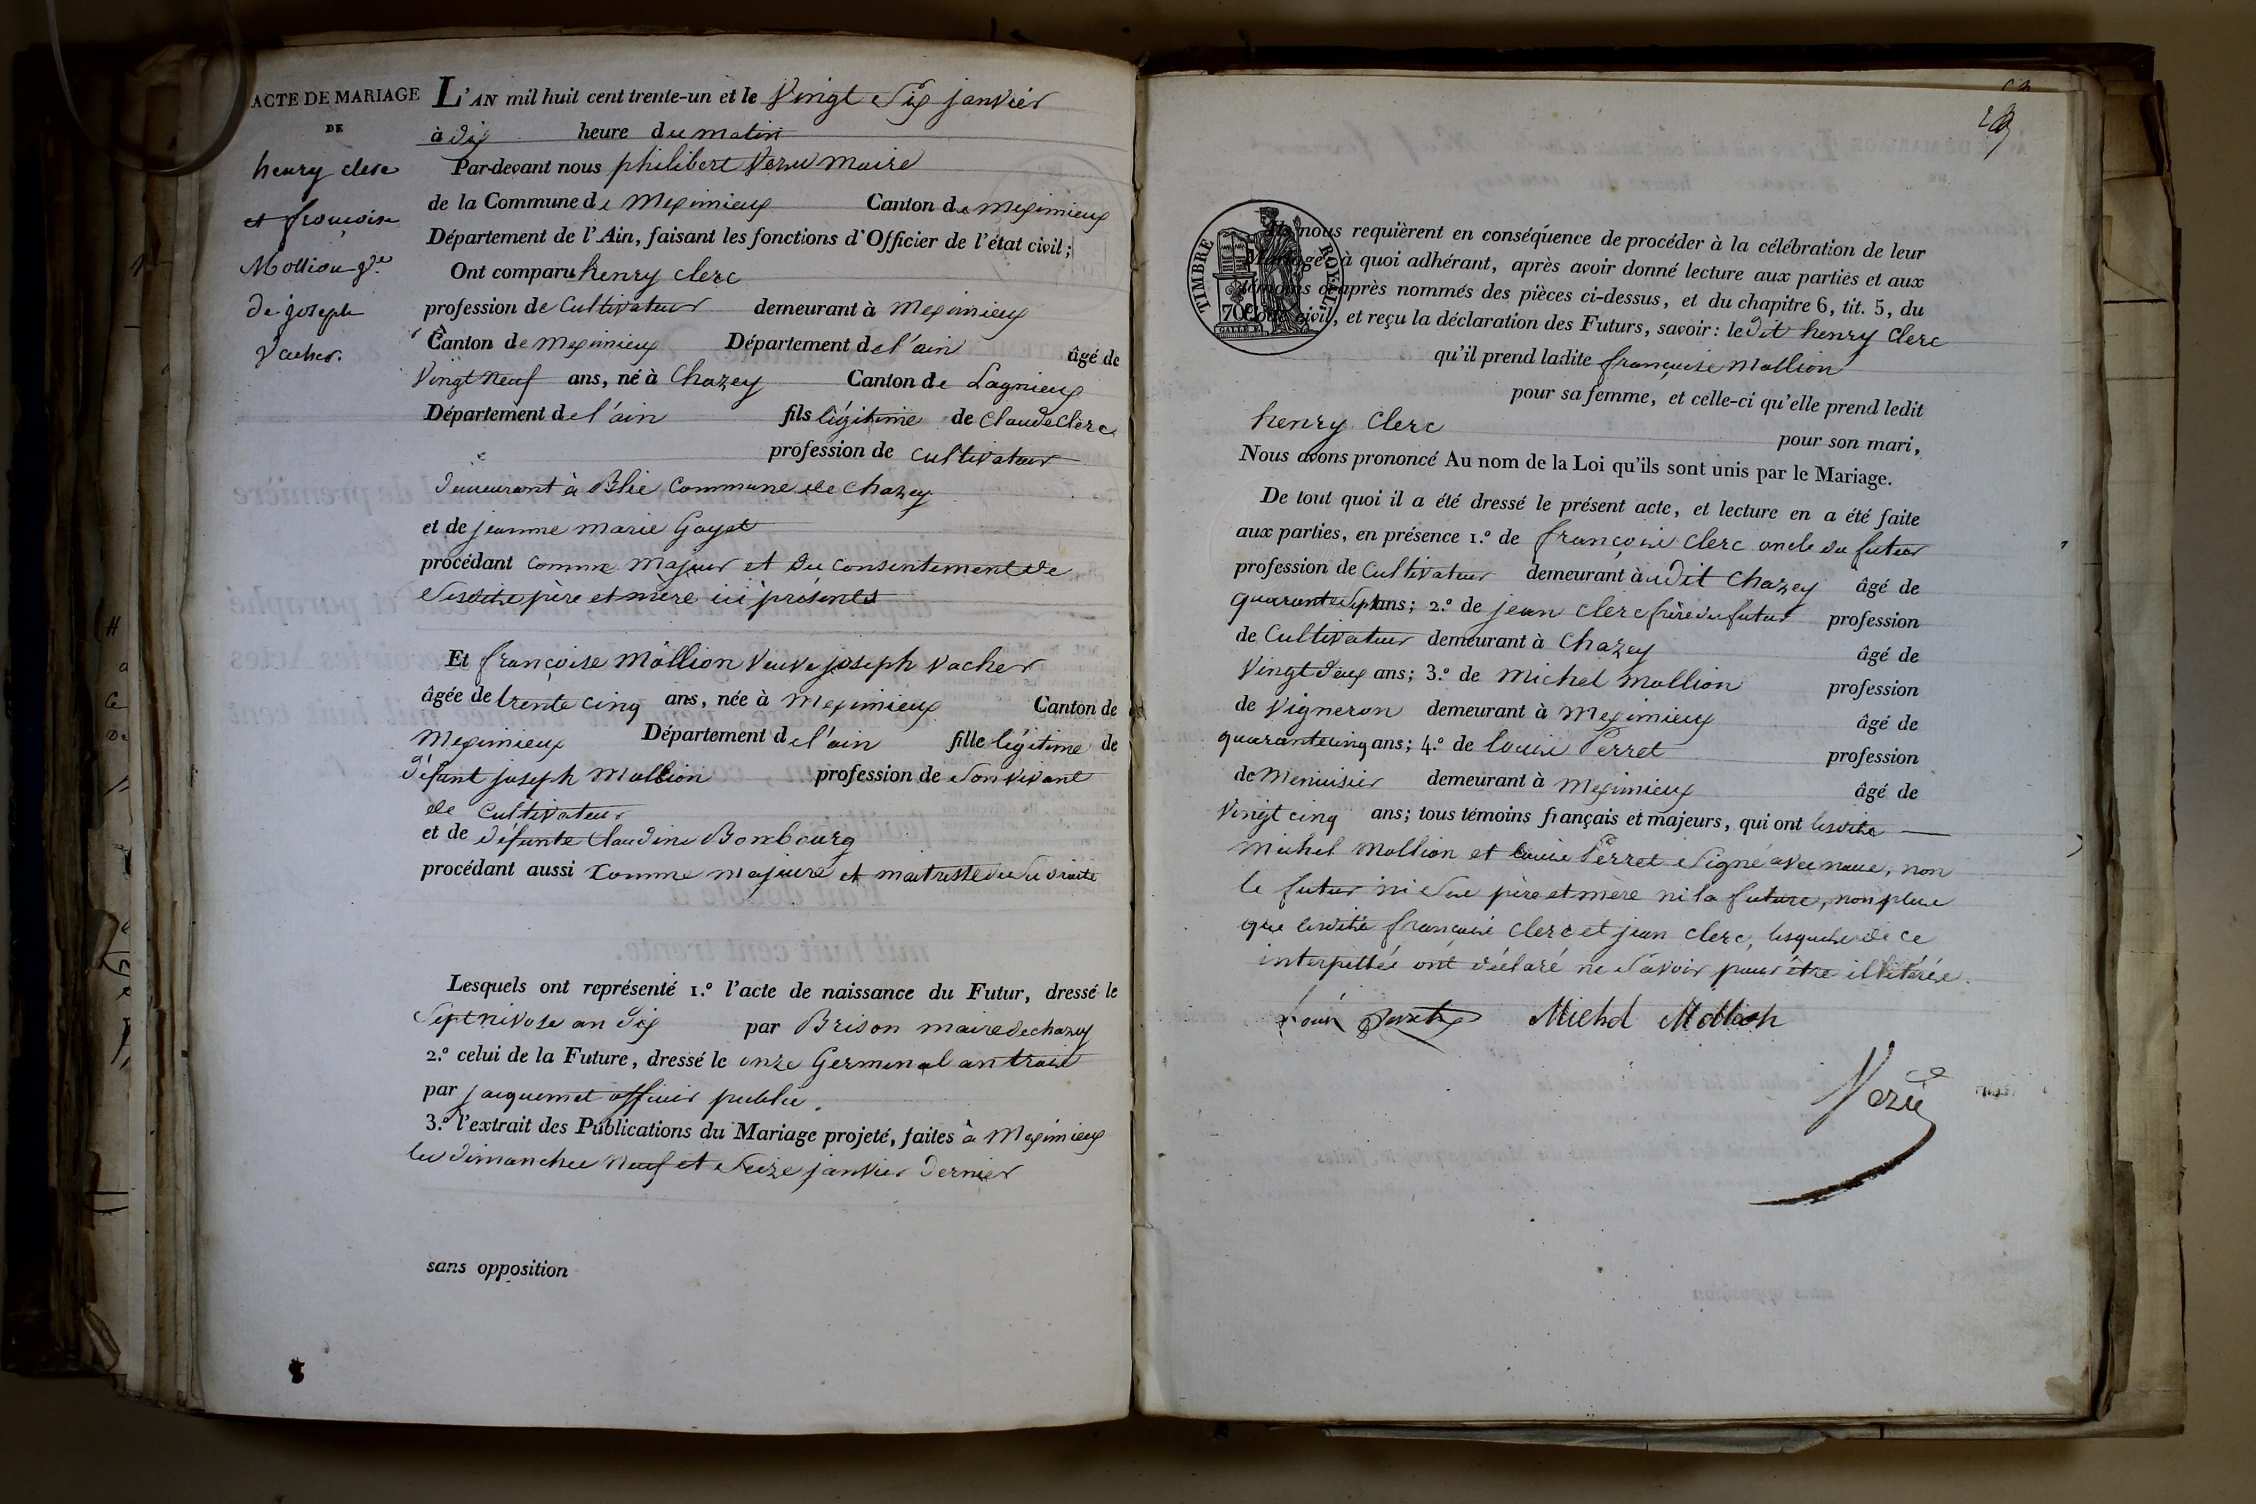 ACTE DE MARIAGE
DE
henry clerc
et françoise
Mollion v.e
de joseph
vacher.
L'AN mil huit cent trente-un et le Vingt Six janvier
à dix heure du matin
Par-devant nous philibert Maire
de la Commune de Meximieux Canton de Meximieux
Département de l'Ain, faisant les fonctions d'Officier de l'état civil;
Ont comparu henry clerc
profession de Cultivateur demeurant à Meximieux
Canton de Meximieux Département de l'ain âgé de
Vingt Neuf ans, né à Chazey Canton de Lagnieux
Département de l'ain fils légitime de Claude Clerc
profession de Cultivateur
demeurant à Blie Commune de Chazey
et de jeanne Marie Goyet
procédant comme Majeur et du consentement de
Sesdits père et mère ici présents
Et françoise Mollion Veuve joseph Vacher
âgée de trente cinq ans, née à Meximieux Canton de
Meximieux Département de l'ain fille légitime de
défunt joseph Mollion profession de Son vivant
de Cultivateur
et de défunte Claudine Bonbourg
procédant aussi Comme majeure et maitresse de ses droits
Lesquels ont représenté 1.º l'acte de naissance du Futur, dressé le
Sept nivose an dix par Brison maire de chazey
2.º celui de la Future, dressé le onze Germinal an trois
par jacquemet officier public.
3.º l'extrait des Publications du Mariage projeté, faites à Meximieux
les dimanches Neuf et Seize janvier dernier
sans opposition
TIMBRE ROYAL
70
Ils nous requièrent en conséquence de procéder à la célébration de leur
Mariage; à quoi adhérant, après avoir donné lecture aux parties et aux
témoins ci-après nommés des pièces ci-dessus, et du chapitre 6, tit. 5, du
Code civil, et reçu la déclaration des Futurs, savoir: ledit henry Clerc
qu'il prend ladite françoise Mollion
pour sa femme, et celle-ci qu'elle prend ledit
henry Clerc pour son mari,
Nous avons prononcé Au nom de la Loi qu'ils sont unis par le Mariage.
De tout quoi il a été dressé le présent acte, et lecture en a été faite
aux parties, en présence 1.º de françois Clerc oncle du futur
profession de Cultivateur demeurant audit Chazey âgé de
quarante Sept ans; 2.º de jean Clerc frère du futur profession
de Cultivateur demeurant à Chazey âgé de
Vingt deux ans; 3.º de Michel Mollion profession
de Vigneron demeurant à Meximieux âgé de
quarante cinq ans; 4.º de louis Perret profession
de Menuisier demeurant à Meximieux âgé de
Vingt cinq ans; tous témoins français et majeurs, qui ont lesdits
Michel Mollion et louis Perret Signé avec nous, non
le futur ni Ses père et mère ni la future, non plus
que lesdits françois Clerc et jean Clerc, lesquels de ce
interpellés ont déclaré ne Savoir pour être illitérés.
Michel Mollion